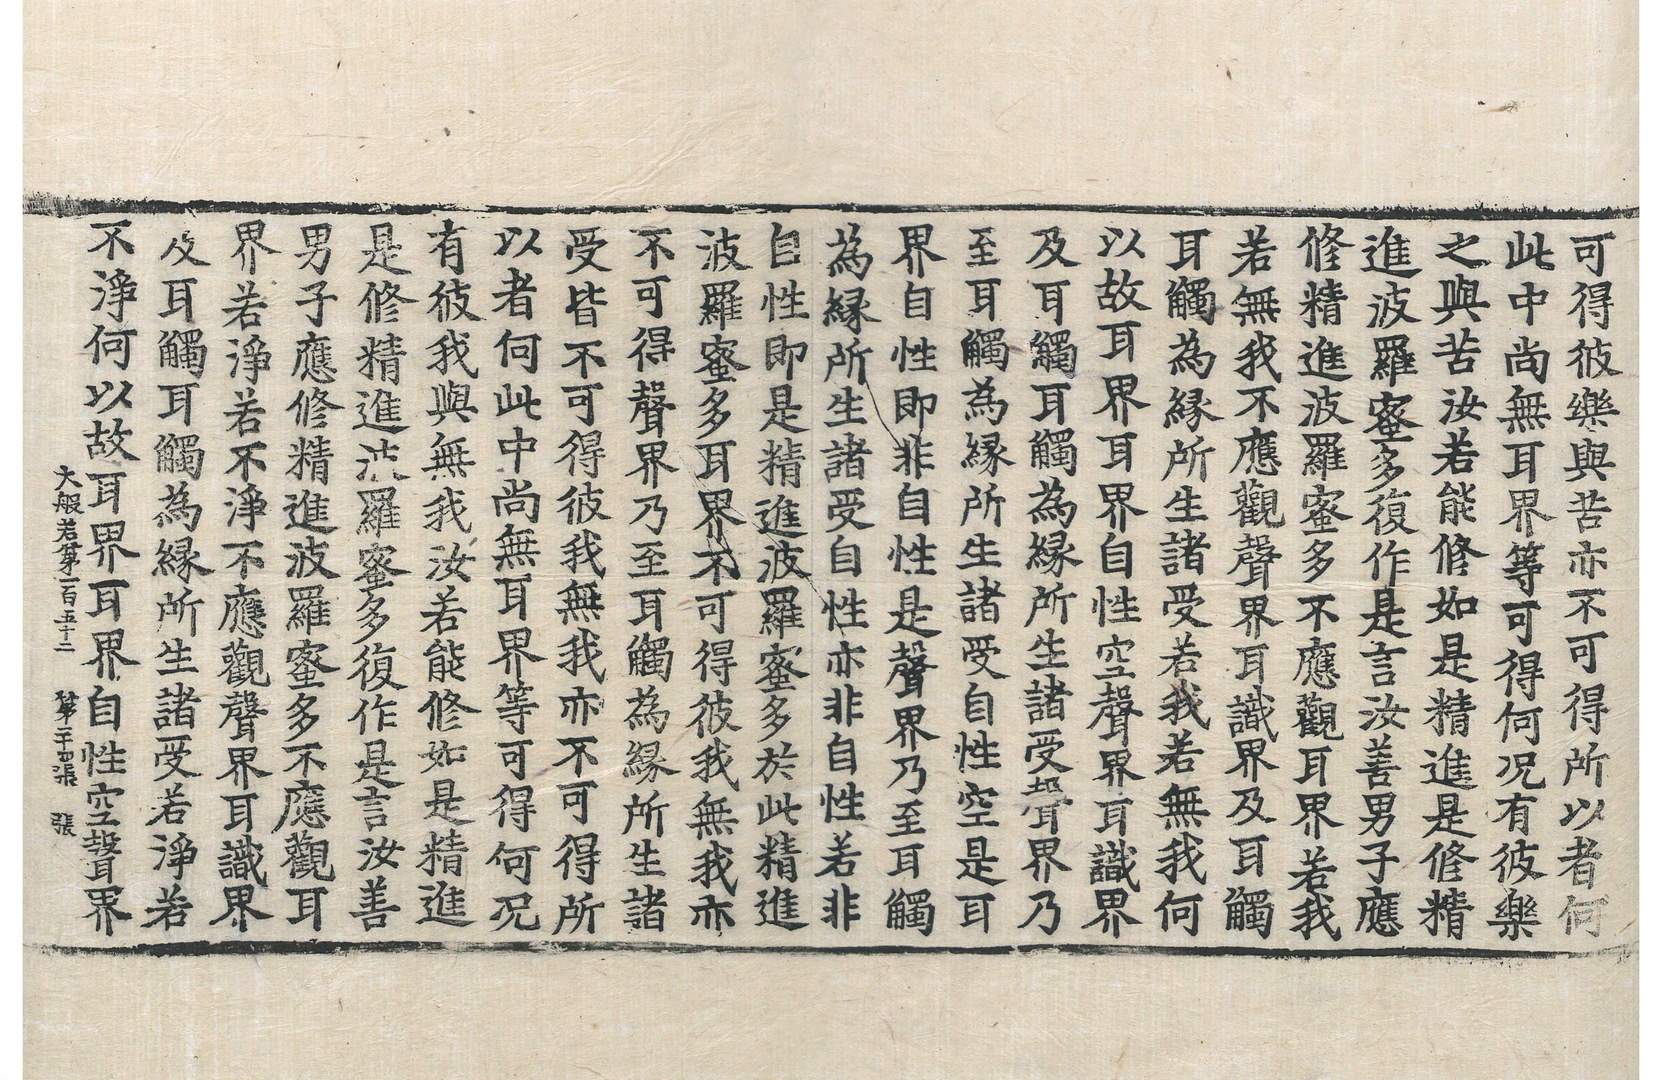 可得彼樂與苦亦不可得所以者何
此中尚無耳界等可得何况有彼樂
之與苦汝若能修如是精進是修精
進波羅蜜多復作是言汝善男子應
修精進波羅蜜多不應觀耳界若我
若無我不應觀聲界耳識界及耳觸
耳觸為緣所生諸受若我若無我何
以故耳界耳界自性空聲界耳識界
及耳觸耳觸為緣所生諸受聲界乃
至耳觸為緣所生諸受自性空是耳
界自性即非自性是聲界乃至耳觸
為緣所生諸受自性亦非自性若非
自性即是精進波羅蜜多於此精進
波羅蜜多耳界不可得彼我無我亦
不可得聲界乃至耳觸為緣所生諸
受皆不可得彼我無我亦不可得所
以者何此中尚無耳界等可得何况
有彼我與無我汝若能修如是精進
是修精進波羅蜜多復作是言汝善
男子應修精進波羅蜜多不應觀耳
界若淨若不淨不應觀聲界耳識界
及耳觸耳觸為緣所生諸受若淨若
不淨何以故耳界耳界自性空聲界
大般若第一百五十二 第二十四張 張